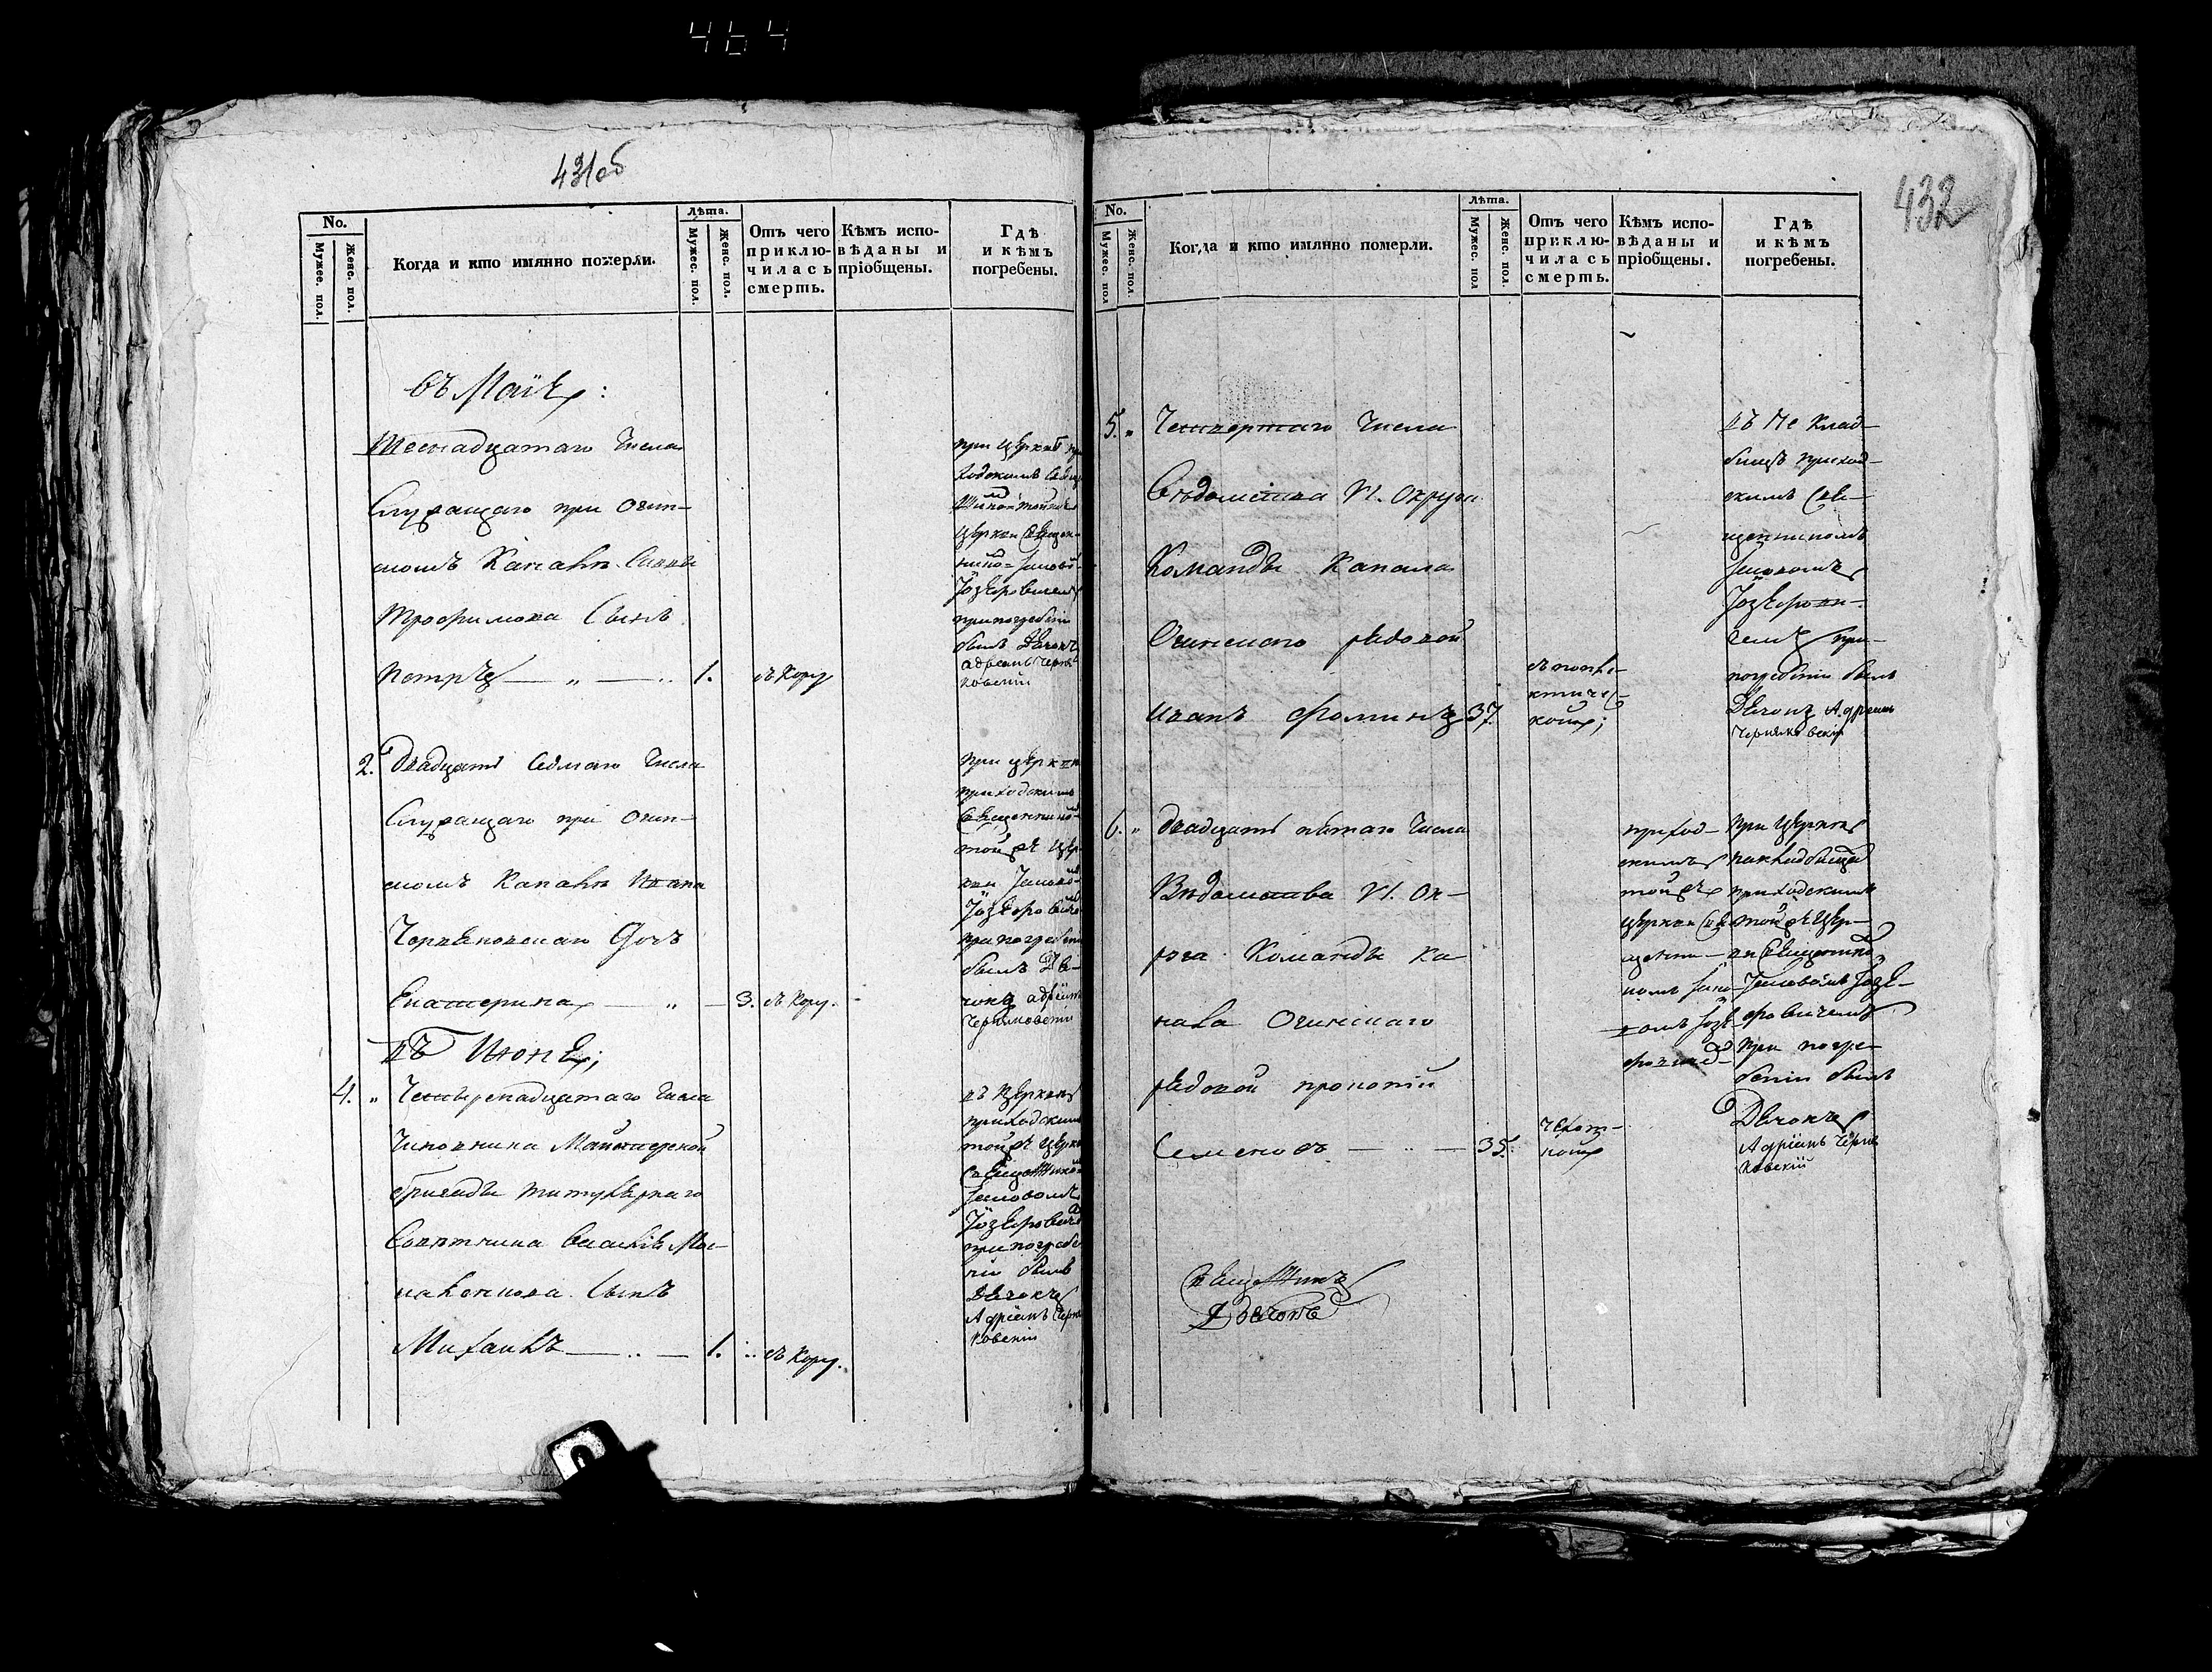 464
431об
No.
Мужес. пол.
Женс. пол.
Когда и кто имянно померли.
Лѣта.
Мужес. пол.
Женс. пол.
Отъ чего приклю- чилась смерть.
Кѣмъ испо- вѣданы и пріобщены.
Гдѣ и кѣмъ погребены.
въ Маіѣ:
Шеснадцатаго Числа
Служащаго при Огин-
скомъ Каналѣ Саввы
Трофимова Сынъ
Петръ — „ — 1. съ Кору
при Церкви
ходскимъ
Церкви Священ-
Іозефовичемъ
при погребеніи
былъ Дьячокъ
Адріанъ Черня-
ковскій
2. Двадцать Седмаго Числа
Служащаго при Огин-
скомъ Каналѣ Ивана
Черняковскаго Дочь
Екатерина — „ — 3. съ Кору.
при церкви
приходскимъ
Священнико-
той же Цер-
кви
Іозефовичемъ
при погребеніи
былъ Дья-
чокъ Адріанъ
Черняковскій
Въ Июнѣ;
4. „ Четыренадцатаго Числа
Чиновника Майстерской
бригады титулярнаго
Советника Василія Мос-
каленкова Сынъ
Михаилъ — „ — 1. съ Кору.
въ Церкви
приходскимъ
той же Церкви
Іозефовичемъ
при погребе-
ніи былъ
Дьячокъ
Адріанъ Черня
ковскій
432
No.
Мужес. пол
Женс. пол.
Когда и кто имянно померли.
Лѣта.
Мужес. пол
Женс. пол.
Отъ чего приклю- чилась смерть.
Кѣмъ испо- вѣданы и пріобщены.
Гдѣ и кѣмъ погребены.
5. „ Четвертаго Числа
Вѣдомства VI. Округа
Команды Канала
Огинскаго рядовой
Иванъ Фоминъ 37.
въ Не клад-
бищѣ приход-
скимъ Свя-
щенникомъ
Іозефови-
чемъ при-
погребеніи былъ
Дьячокъ Адріанъ
Черняковскій
6. „ двадцать пятаго Числа
Вѣдомства VI. Ок-
руга Команды Ка
нала Огинскаго
рядовой Прокопій
Семеновъ — „ — 35.
чехот-
кою
приход-
скимъ
той же
церкви Свя
щенни-
комъ
при Церкви
на кладбищѣ
приходскимъ
той же Цер-
кви Священнико
Іозе-
фовичемъ
при погре-
беніи былъ
Дьячокъ
Адріанъ Черня
ковскій
Священникъ
Дьячокъ